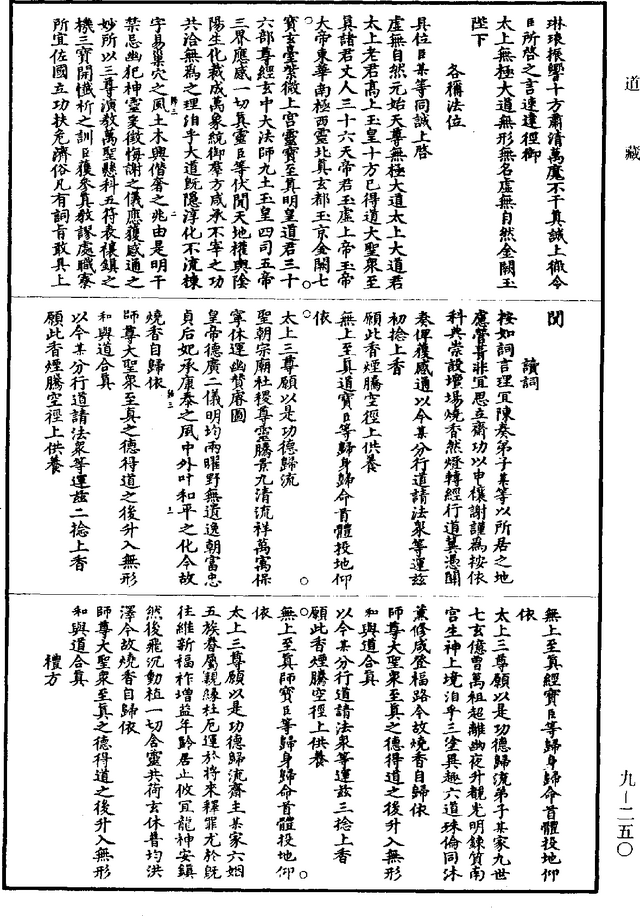 道藏
琳琅振響十方肅清萬魔不干真誠上徹今
臣所啓之言速達徑御
太上無極大道無形無名虛無自然金闕玉
陛下
各稱法位
具位臣某等同誠上啓
虛無自然元始天尊無極大道太上大道君
太上老君高上玉皇十方已得道大聖眾至
真諸君丈人三十六天帝君玉虛上帝玉帝
大帝東華南極西靈北真玄都玉京金闕七
寶玄臺紫微上宮靈寶至真明皇道君三十
六部尊經玄中大法師九土玉皇四司五帝
三界應感一切真靈臣等伏聞天地權輿陰
陽生化載成萬象統御羣方咸承不宰之功
共洽無為之理洎乎大道旣隱淳化不流棟
宇易巢穴之風土木興僭奢之兆由是明干
禁忌幽犯神靈爰徵悔謝之儀應獲感通之
妙所以三尊演教萬聖垂科五符表禳鎮之
機三寶開懺祈之訓臣獲參真教謬處職寮
所宜佐國立功扶危濟俗凡有詞旨敢具上
聞
讀詞
按如詞言理宜陳奏弟子某等以所居之地
應營葺非宜思立齋功以申禳謝謹為按依
科典崇設壇場燒香然燈轉經行道冀憑關
奏俾獲感通以今某分行道請法衆等運茲
初捻上香
願此香煙騰空徑上供養
無上至真道寶臣等歸身歸命首體投地仰
依
太上三尊願以是功德歸流
聖朝宗廟社稷尊靈騰景九清流祥萬寓保
寧休運幽贊睿圖
皇帝德廣二儀明均兩曜野無遺逸朝富忠
貞后妃承康泰之風中外叶和平之化今故
燒香自歸依
師尊大聖衆至真之德得道之後升入無形
和與道合真
以今某分行道請法衆等運茲二捻上香
願此香煙騰空徑上供養
無上至真經寶臣等歸身歸命首體投地仰
依
太上三尊願以是功德歸流弟子某家九世
七玄億曾萬祖超離幽夜升覩光明鍊質南
宮生神上境洎乎三塗異趣六道殊倫同沐
薰修咸登福路今故燒香自歸依
師尊大聖衆至真之德得道之後升入無形
和與道合真
以今某分行道請法衆等運茲三捻上香
願此香煙騰空徑上供養
無上至真師寶臣等歸身歸命首體投地仰
依
太上三尊願以是功德歸流齋主某家六姻
五族眷屬親緣杜厄運於將來釋罪尤於旣
往維新福祚增益年齡居止攸宜龍神安鎮
然後飛沉動植一切含靈共荷玄休普均洪
澤今故燒香自歸依
師尊大聖衆至真之德得道之後升入無形
和與道合真
禮方
九—二五〇